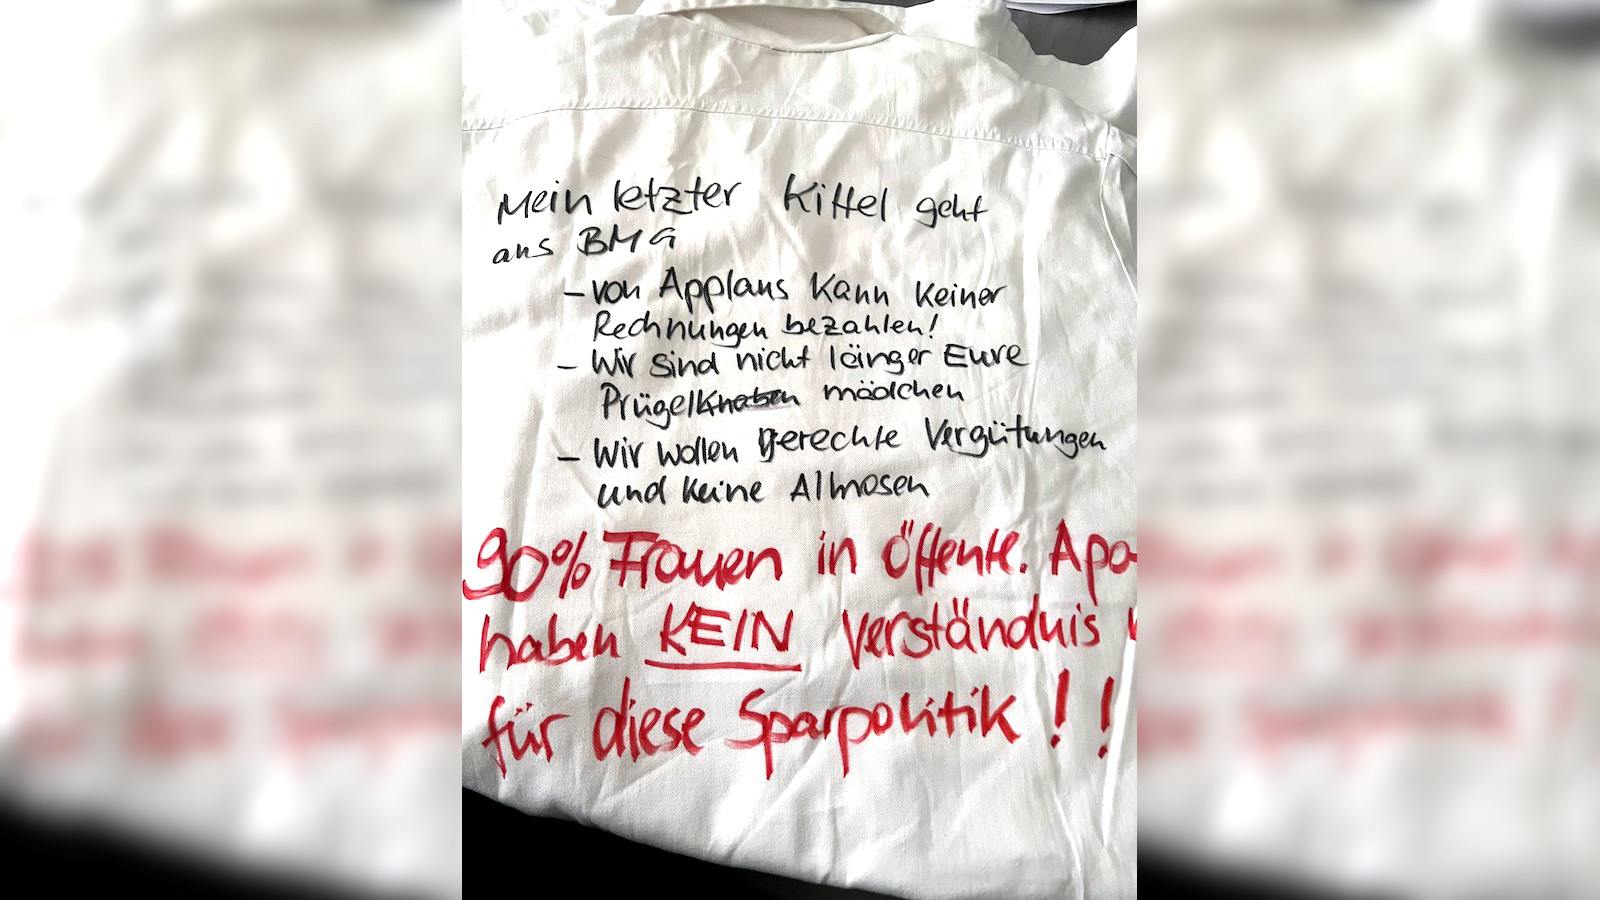 Mein letzter Kittel geht
ans BMG
- von Applaus kann keiner
Rechnungen bezahlen!
- Wir sind nicht länger Eure
Prügelknaben mädchen
- Wir wollen gerechte Vergütungen
und keine Almosen
90% Frauen in Öffentl. Apo-
haben KEIN Verständnis
für diese Sparpolitik !!